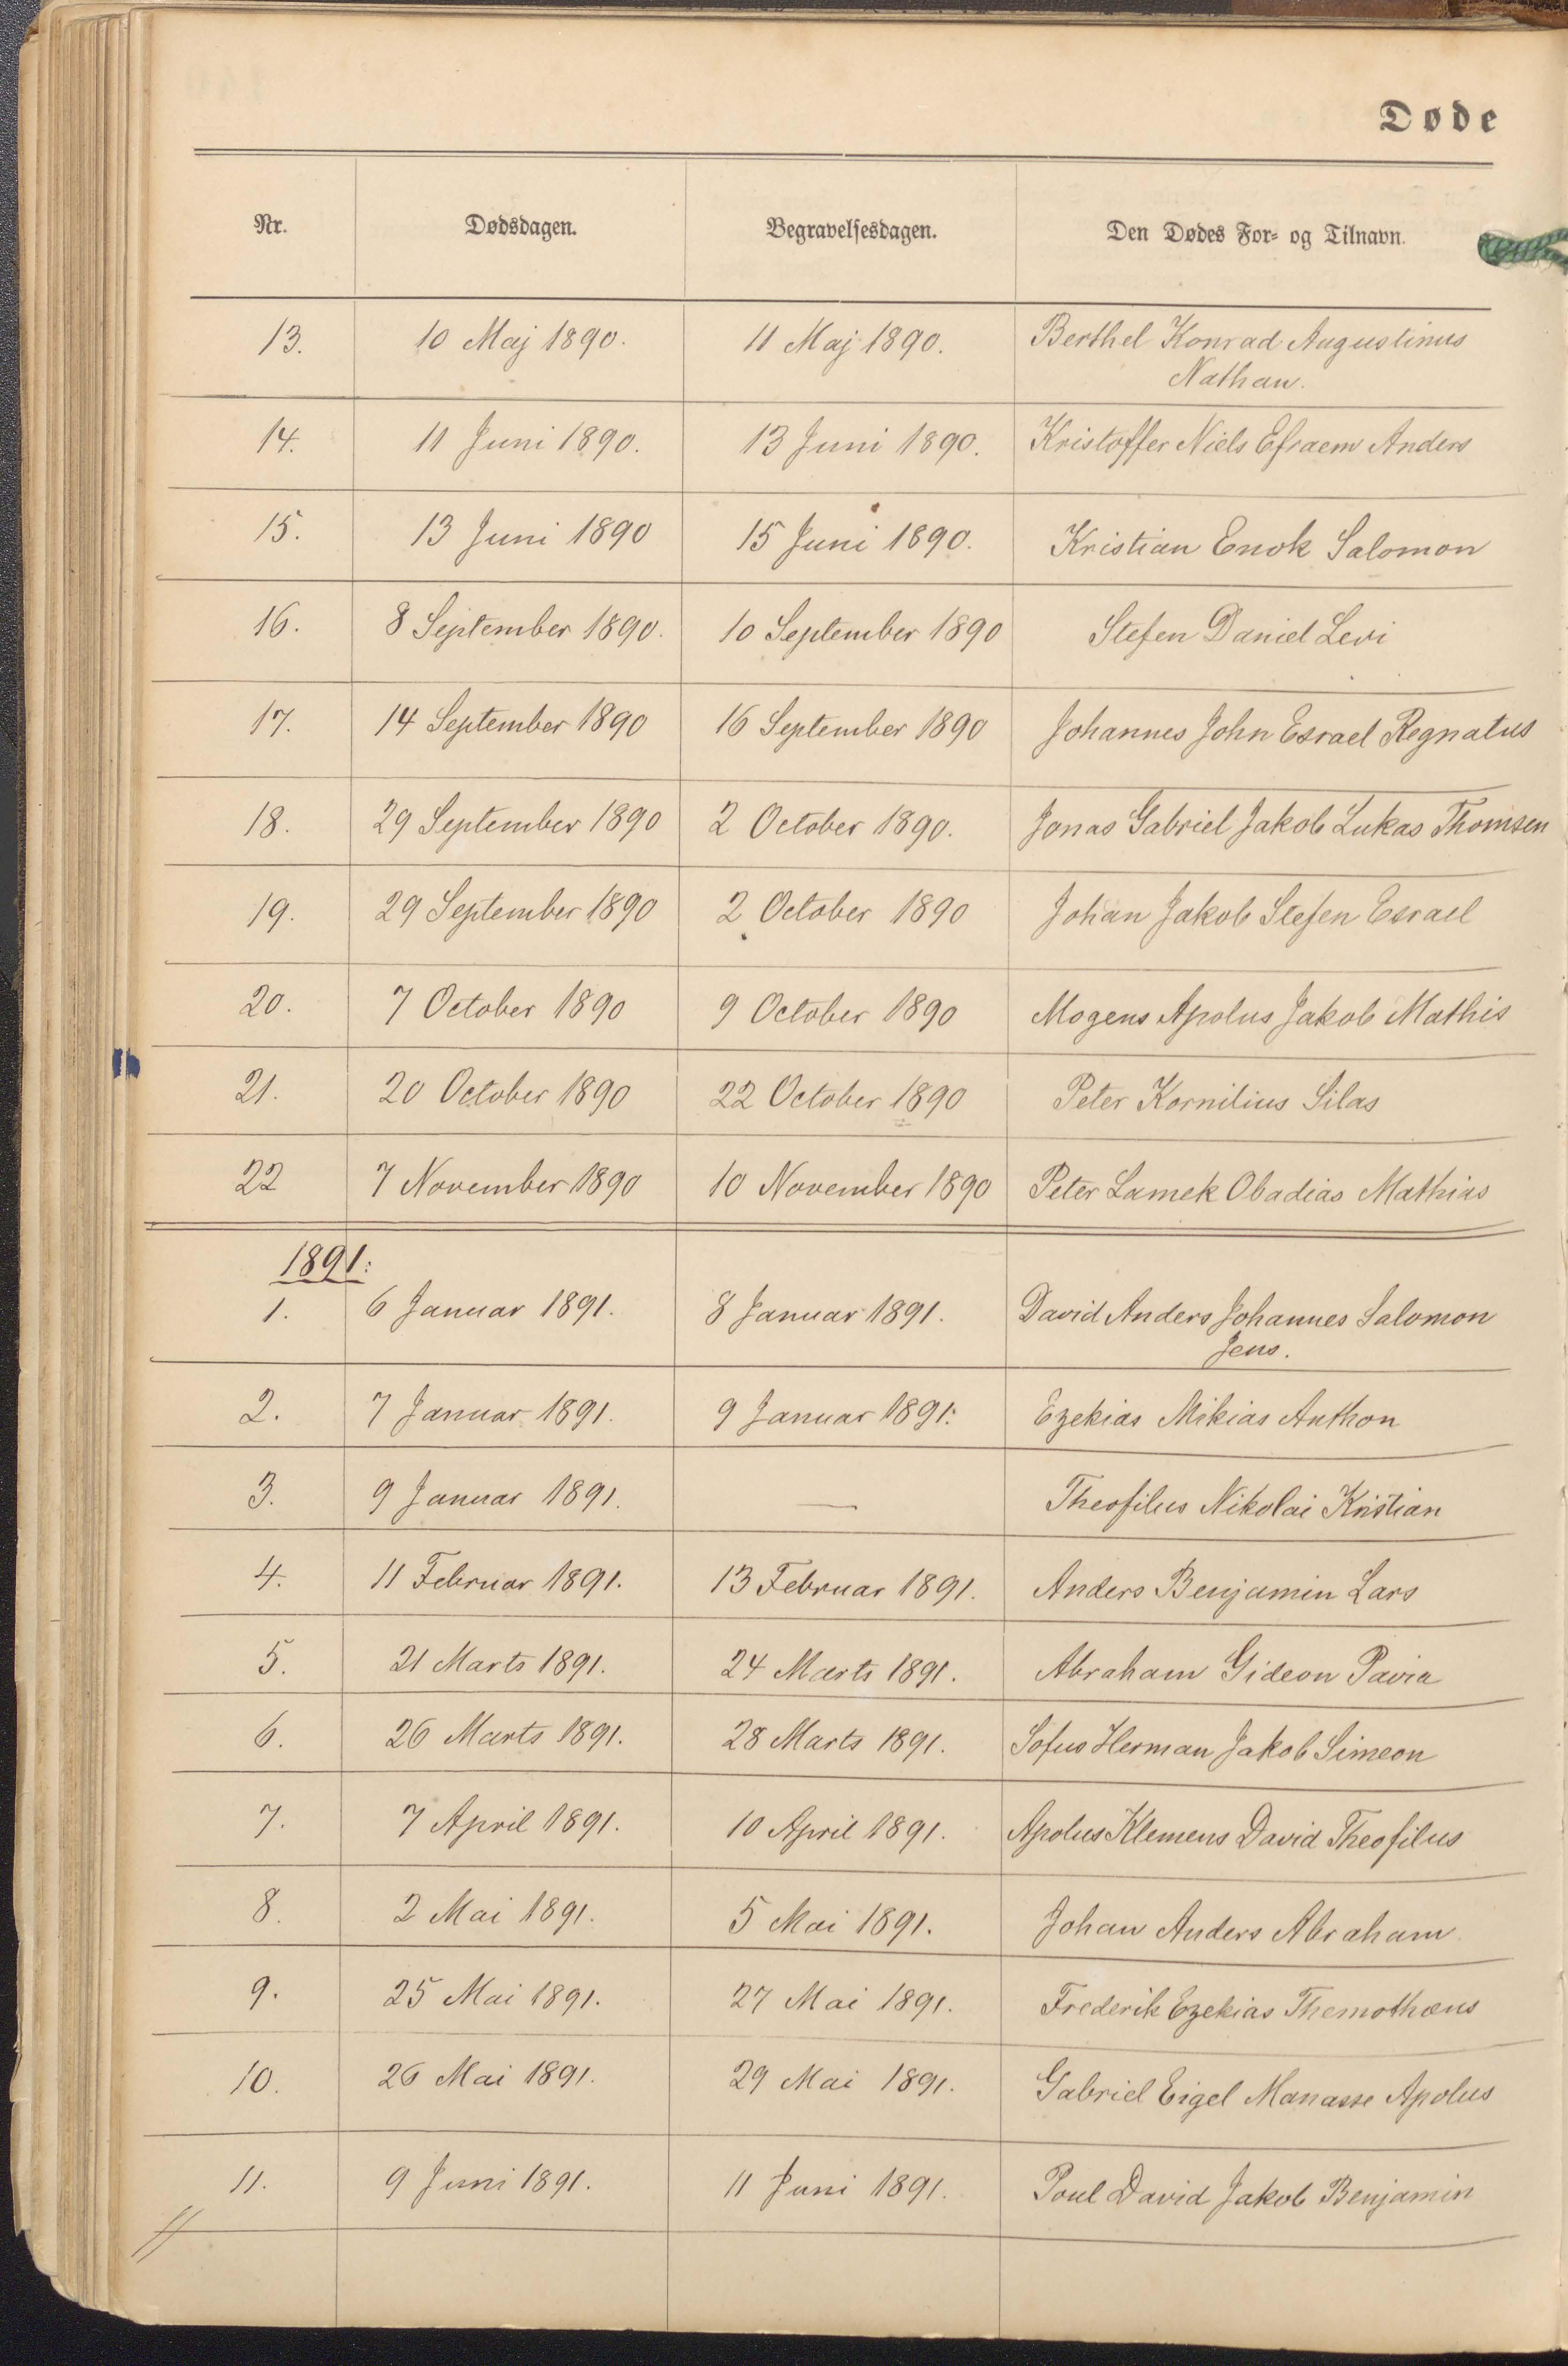 Døde
Nr. Dødsdagen. Begravelsesdagen. Den Dødes For- og Tilnavn.
13. 10 Maj 1890. 11 Maj 1890. Berthel Konrad Augustinus
Nathan.
14. 11 Juni 1890. 13 Juni 1890. Kristoffer Niels Efraem Anders
15. 13 Juni 1890 15 Juni 1890. Kristian Enok Salomon
16. 8 September 1890. 10 September 1890 Stefen Daniel Levi
17. 14 September 1890 16 September 1890 Johannes John Esrael Regnatus
18. 29 September 1890 2 October 1890. Jonas Gabriel Jakob Lukas Thomsen
19. 29 September 1890 2 October 1890 Johan Jakob Stefen Esrael
20. 7 October 1890 9 October 1890 Mogens Apolus Jakob Mathis
21. 20 October 1890 22 October 1890 Peter Kornilius Silas
22 7 November 1890 10 November 1890 Peter Lamek Obadias Mathias
1891:
1. 6 Januar 1891. 8 Januar 1891. David Anders Johannes Salomon
Jens.
2. 7 Januar 1891. 9 Januar 1891. Ezekias Mikias Anthon
3. 9 Januar 1891. — Theofilus Nikolai Kristian
4. 11 Februar 1891. 13 Februar 1891. Anders Benjamin Lars
5. 21 Marts 1891. 24 Marts 1891. Abraham Gideon Pavia
6. 26 Marts 1891. 28 Marts 1891. Sofus Herman Jakob Simeon
7. 7 April 1891. 10 April 1891. Apolus Klemens David Theofilus
8. 2 Mai 1891. 5 Mai 1891. Johan Anders Abraham
9. 25 Mai 1891. 27 Mai 1891. Frederik Ezekias Themothæus
10. 26 Mai 1891. 29 Mai 1891. Gabriel Eigel Manasse Apolus
11. 9 Juni 1891. 11 Juni 1891. Poul David Jakob Benjamin